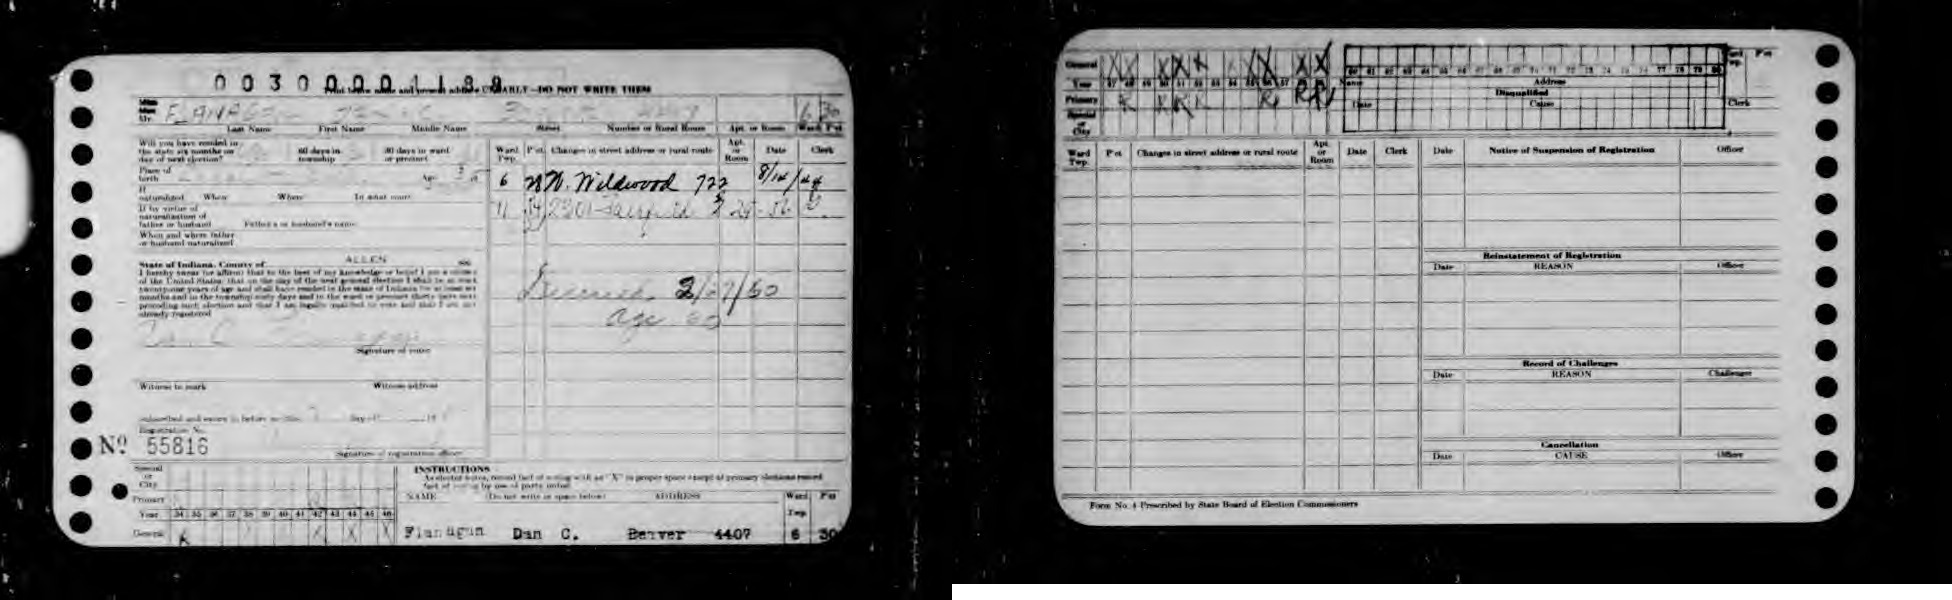 00300004188
Print below name and present address CLEARLY—DO NOT WRITE THEM
Miss
Mrs.
Mr.
6 30
Last Name First Name Middle Name Street Number or Rural Route Apt. or Room Ward Pct
Will you have resided in
the state six months on
day of next election? 60 days in
township 30 days in ward
or precinct
Ward
Twp. Pct. Changes in street address or rural route Apt.
or
Room Date Clerk
Place of
birth Age
6 28 N. Wildwood 722 8/14/44
If
naturalized When Where In what court
11 2301 Fairfield
If by virtue of
naturalization of
father or husband Father's or husband's name
When and where father
or husband naturalized
State of Indiana, County of ALLEN ss:
I hereby swear (or affirm) that to the best of my knowledge or belief I am a citizen
of the United States; that on the day of the next general election I shall be at least
twenty-one years of age and shall have resided in the state of Indiana for at least six
months and in the township sixty days and in the ward or precinct thirty days next
preceding such election and that I am legally qualified to vote and that I am not
already registered
Deceased 2/27/60
age 60
Signature of voter
Witness to mark Witness address
Subscribed and sworn to before me this day of
Registration No.
No 55816
Signature of registration officer
Special
or
City
Primary
Year 34 35 36 37 38 39 40 41 42 43 44 45 46
General X X X X
INSTRUCTIONS
As elector votes, record fact of voting with an "X" in proper space except at primary elections record
fact of voting by use of party initial
NAME (Do not write in space below) ADDRESS Ward
Twp. Pct
Flanagin Dan C. Beaver 4407 6 30
General X X X X X X X X X X
Year 47 48 49 50 51 52 53 54 55 56 57 58 59
Primary R R R R R R R
Special
or
City
60 61 62 63 64 65 66 67 68 69 70 71 72 73 74 75 76 77 78 79 80
Ward
Twp. Pct
Name Address
Disqualified
Date Cause Clerk
Ward
Twp. Pct Changes in street address or rural route Apt.
or
Room Date Clerk
Date Notice of Suspension of Registration Officer
Reinstatement of Registration
Date REASON Officer
Record of Challenges
Date REASON Challenger
Cancellation
Date CAUSE Officer
Form No. 4 Prescribed by State Board of Election Commissioners